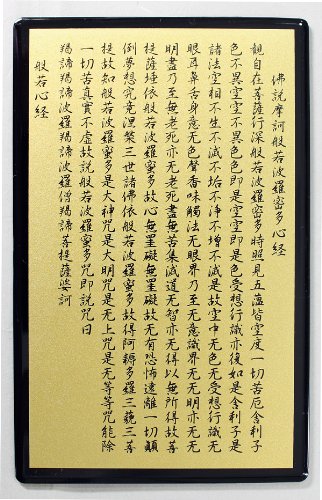 佛說摩訶般若波羅密多心經
觀自在菩薩行深般若波羅密多時照見五蘊皆空度一切苦厄舍利子
色不異空空不異色色即是空空即是色受想行識亦復如是舍利子是
諸法空相不生不滅不垢不淨不增不減是故空中无色无受想行識无
眼耳鼻舌身意无色聲香味觸法无眼界乃至无意識界无无明亦无无
明盡乃至無老死亦无老死盡無苦集滅道无智亦无得以無所得故菩
提薩埵依般若波羅蜜多故心無罣礙無罣礙故无有恐怖遠離一切顛
倒夢想究竟涅槃三世諸佛依般若波羅蜜多故得阿耨多羅三藐三菩
提故知般若波羅蜜多是大神咒是大明咒是无上咒是无等等咒能除
一切苦真實不虛故說般若波羅蜜多咒即說咒曰
羯諦羯諦波羅羯諦波羅僧羯諦菩提薩婆訶
般若心経